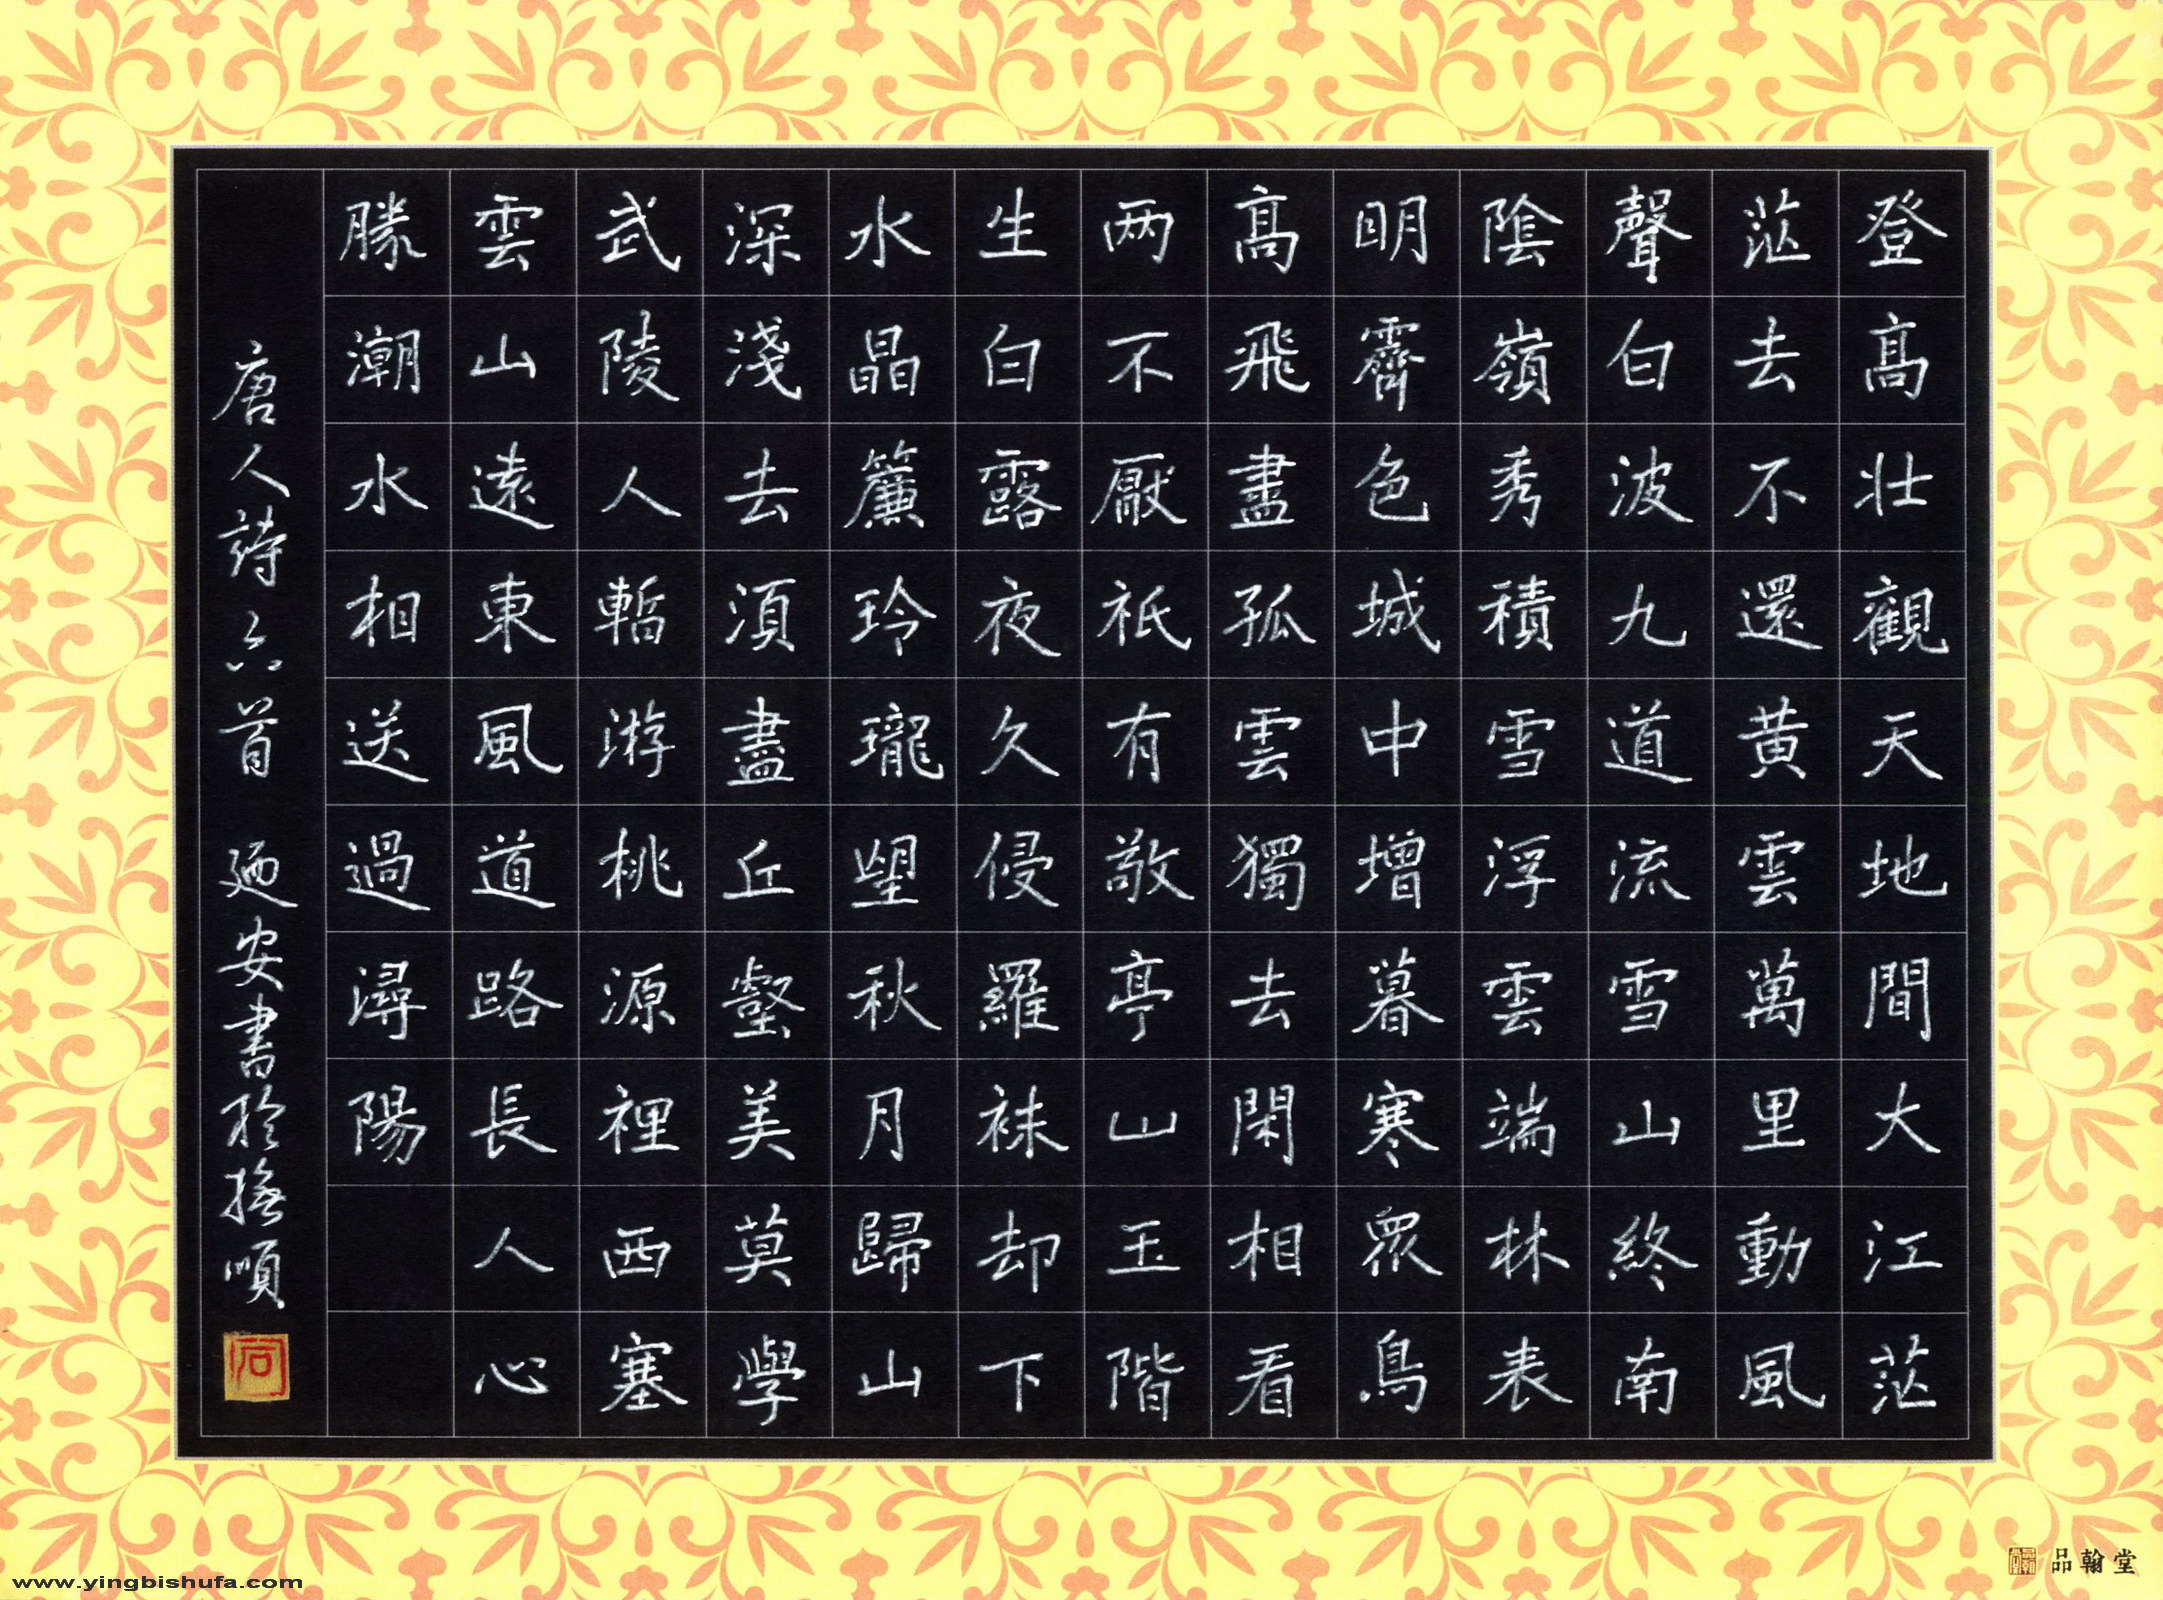 登高壯觀天地間大江茫
茫去不還黃雲萬里動風
聲白波九道流雪山終南
陰嶺秀積雪浮雲端林表
明霽色城中增暮寒眾鳥
高飛盡孤雲獨去閑相看
两不厭祇有敬亭山玉階
生白露夜久侵羅袜却下
水晶簾玲瓏望秋月歸山
深淺去須盡丘壑美莫學
武陵人暫游桃源裡西塞
雲山遠東風道路長人心
勝潮水相送過潯陽
唐人詩六首 廼安書於撫順
品翰堂
www.yingbishufa.com